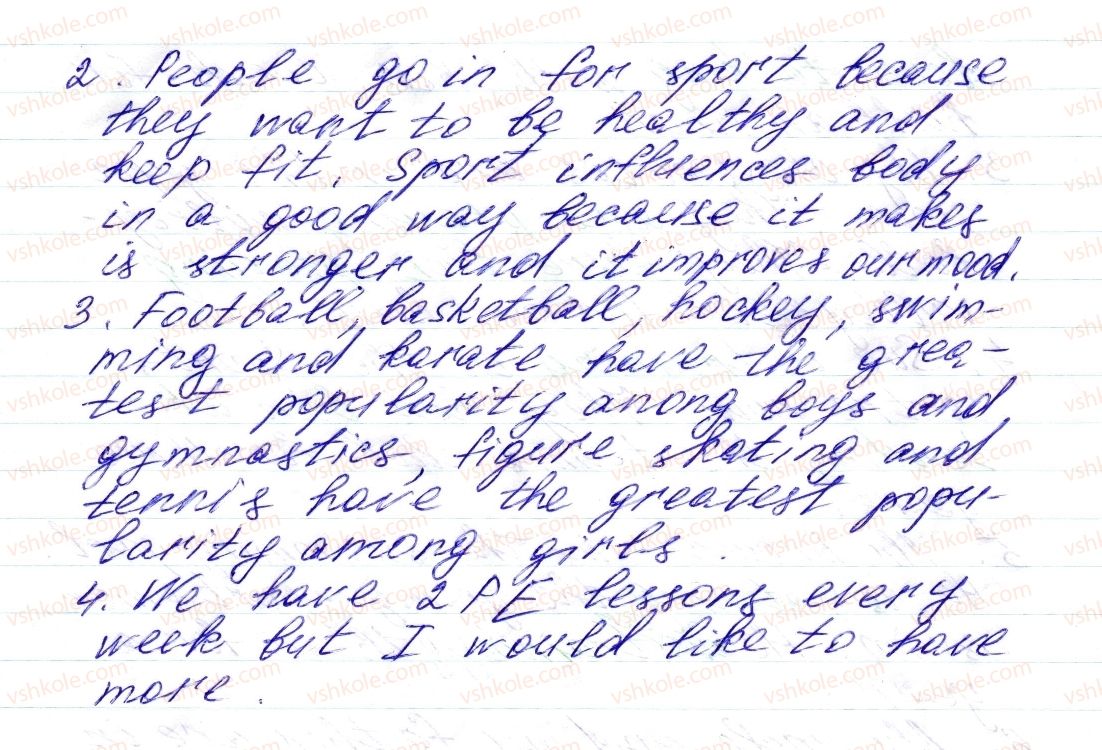 2. People go in for sport because
they want to be healthy and
keep fit. Sport influences body
in a good way because it makes
is stronger and it improves our mood.
3. Football, basketball, hockey, swim-
ming and karate have the grea-
test popularity among boys and
gymnastics, figure skating and
tennis have the greatest popu-
larity among girls.
4. We have 2 PE lessons every
week but I would like to have
more.